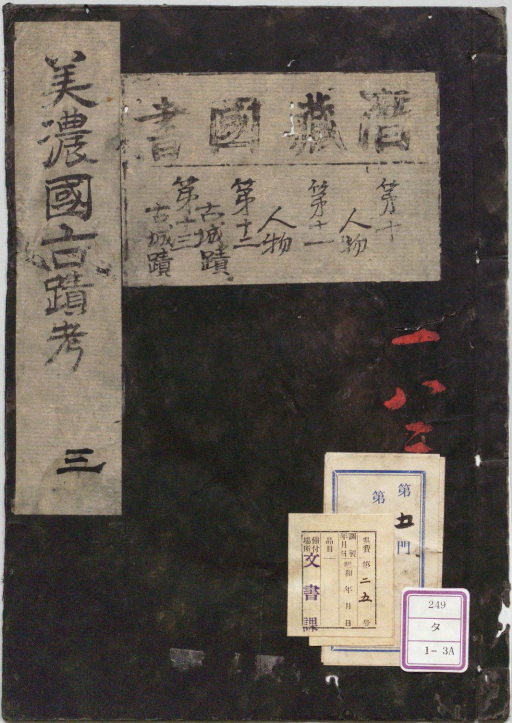 美濃國古蹟考
三
舊藏國書
第十
人物
第十一
人物
第十二
古城蹟
第十三
古城蹟
一八三
第五門
第
県費第二五号
調製年月日
昭和 年 月 日
品目
備付場所
文書課
249
タ
1-3A